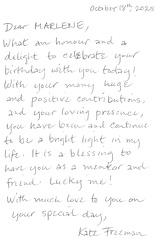 October 18th 2025
Dear MARLENE,
What an honour and a
delight to celebrate your
birthday with you today!
With your many huge
and positive contributions,
and your loving presence,
you have been and continue
to be a bright light in my
life. It is a blessing to
have you as a mentor and
friend. Lucky me!
With much love to you on
your special day,
Kate Freeman